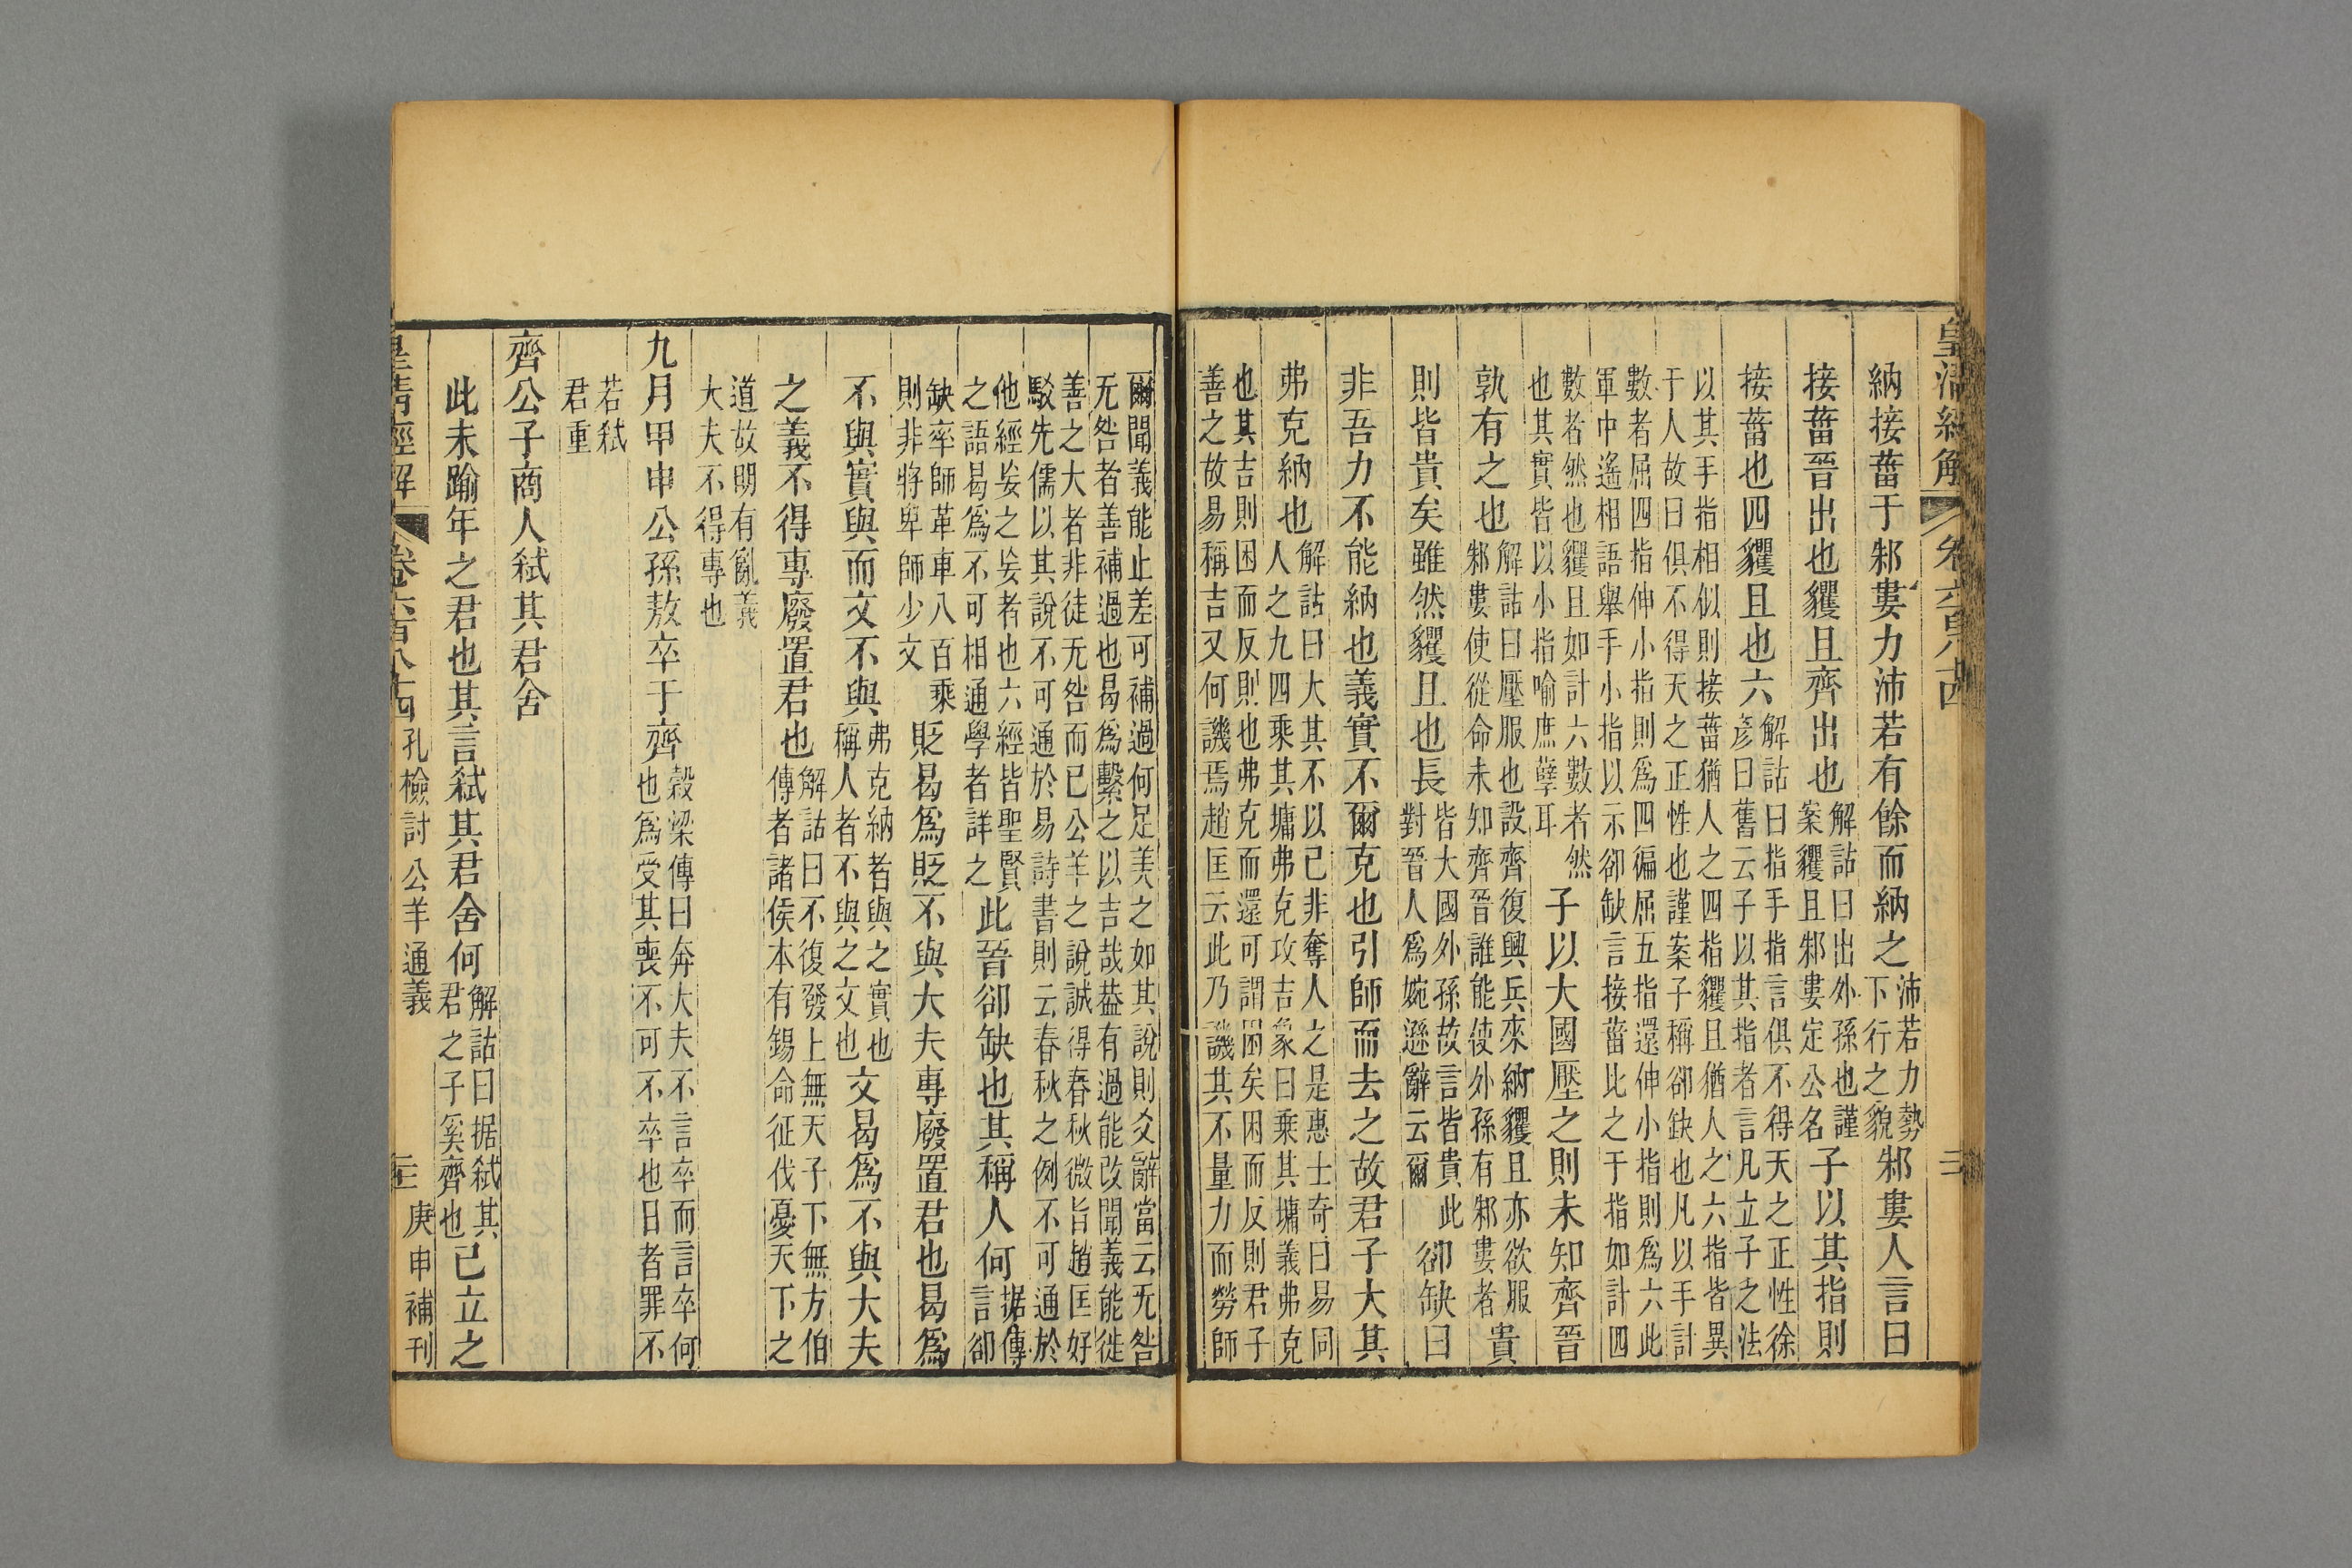 皇清經解 卷六百八十四 三
納接菑于邾婁力沛若有餘而納之沛若力勢下行之貌邾婁人言曰
接菑晉出也貜且齊出也解詁曰出外孫也謹案貜且邾婁定公名子以其指則
接菑也四貜且也六解詁曰指手指言俱不得天之正性徐彥曰舊云子以其指者言凡立子之法
以其手指相似則接菑猶人之四指貜且猶人之六指皆異于人故曰俱不得天之正性也謹案子稱卻缺也凡以手計
數者屈四指伸小指則爲四徧屈五指還伸小指則爲六此軍中遙相語舉手小指以示卻缺言接菑比之于指如計四
數者然也貜且如計六數者然也其實皆以小指喻庶孽耳子以大國壓之則未知齊晉
孰有之也解詁曰壓服也設齊復興兵來納貜且亦欲服邾婁使從命未知齊晉誰能使外孫有邾婁者貴
則皆貴矣雖然貜且也長皆大國外孫故言皆貴此對晉人爲婉遜辭云爾卻缺曰
非吾力不能納也義實不爾克也引師而去之故君子大其
弗克納也解詁曰大其不以己非奪人之是惠士奇曰易同人之九四乘其墉弗克攻吉象曰乘其墉義弗克
也其吉則困而反則也弗克而還可謂困矣困而反則君子善之故易稱吉又何譏焉趙匡云此乃譏其不量力而勞師
爾聞義能止差可補過何足美之如其說則爻辭當云无咎无咎者善補過也曷爲繫之以吉哉葢有過能改聞義能徙
善之大者非徒无咎而已公羊之說誠得春秋微旨趙匡好駁先儒以其說不可通於易詩書則云春秋之例不可通於
他經妄之妄者也六經皆聖賢之語曷爲不可相通學者詳之此晉卻缺也其稱人何据傳言卻
缺率師革車八百乘則非將卑師少文貶曷爲貶不與大夫專廢置君也曷爲
不與實與而文不與弗克納者與之實也稱人者不與之文也文曷爲不與大夫
之義不得專廢置君也解詁曰不復發上無天子下無方伯傳者諸侯本有錫命征伐憂天下之
道故明有亂義大夫不得專也
九月甲申公孫敖卒于齊穀梁傳曰奔大夫不言卒而言卒何也爲受其喪不可不卒也日者罪不
若弒君重
齊公子商人弒其君舍
此未踰年之君也其言弒其君舍何解詁曰据弒其君之子奚齊也已立之
皇清經解 卷六百八十四 孔檢討公羊通義 三 庚申補刊